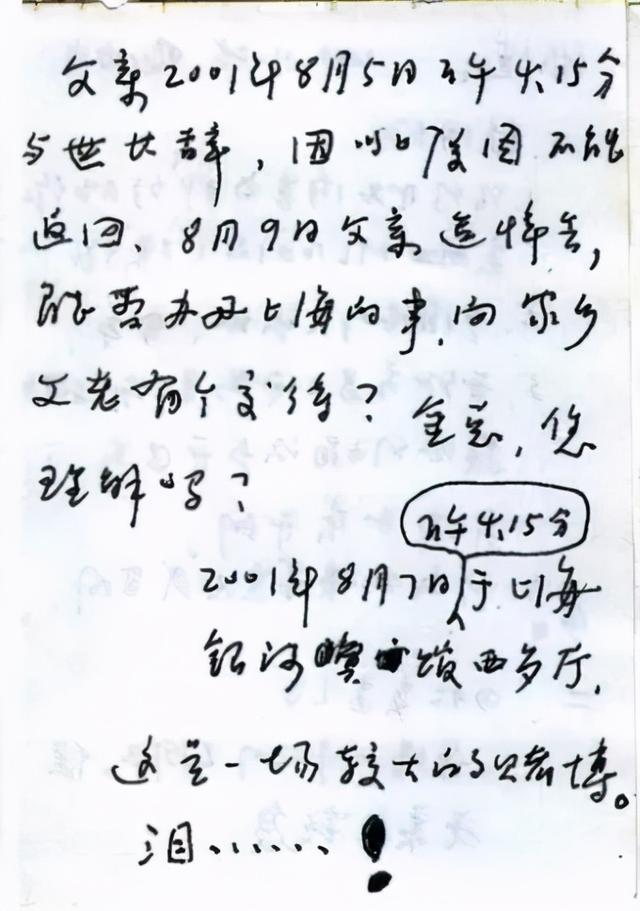 父亲2001年8月5日下午4.15分
与世长辞，因不能
返回、8月9日父亲追悼会，
能否办好上海的事，向家乡
父老有个交待？金总，您
理解吗？
下午4.15分
2001年8月7日于上海
银河宾馆西厅，
这是一场较大的赌博。
泪......！